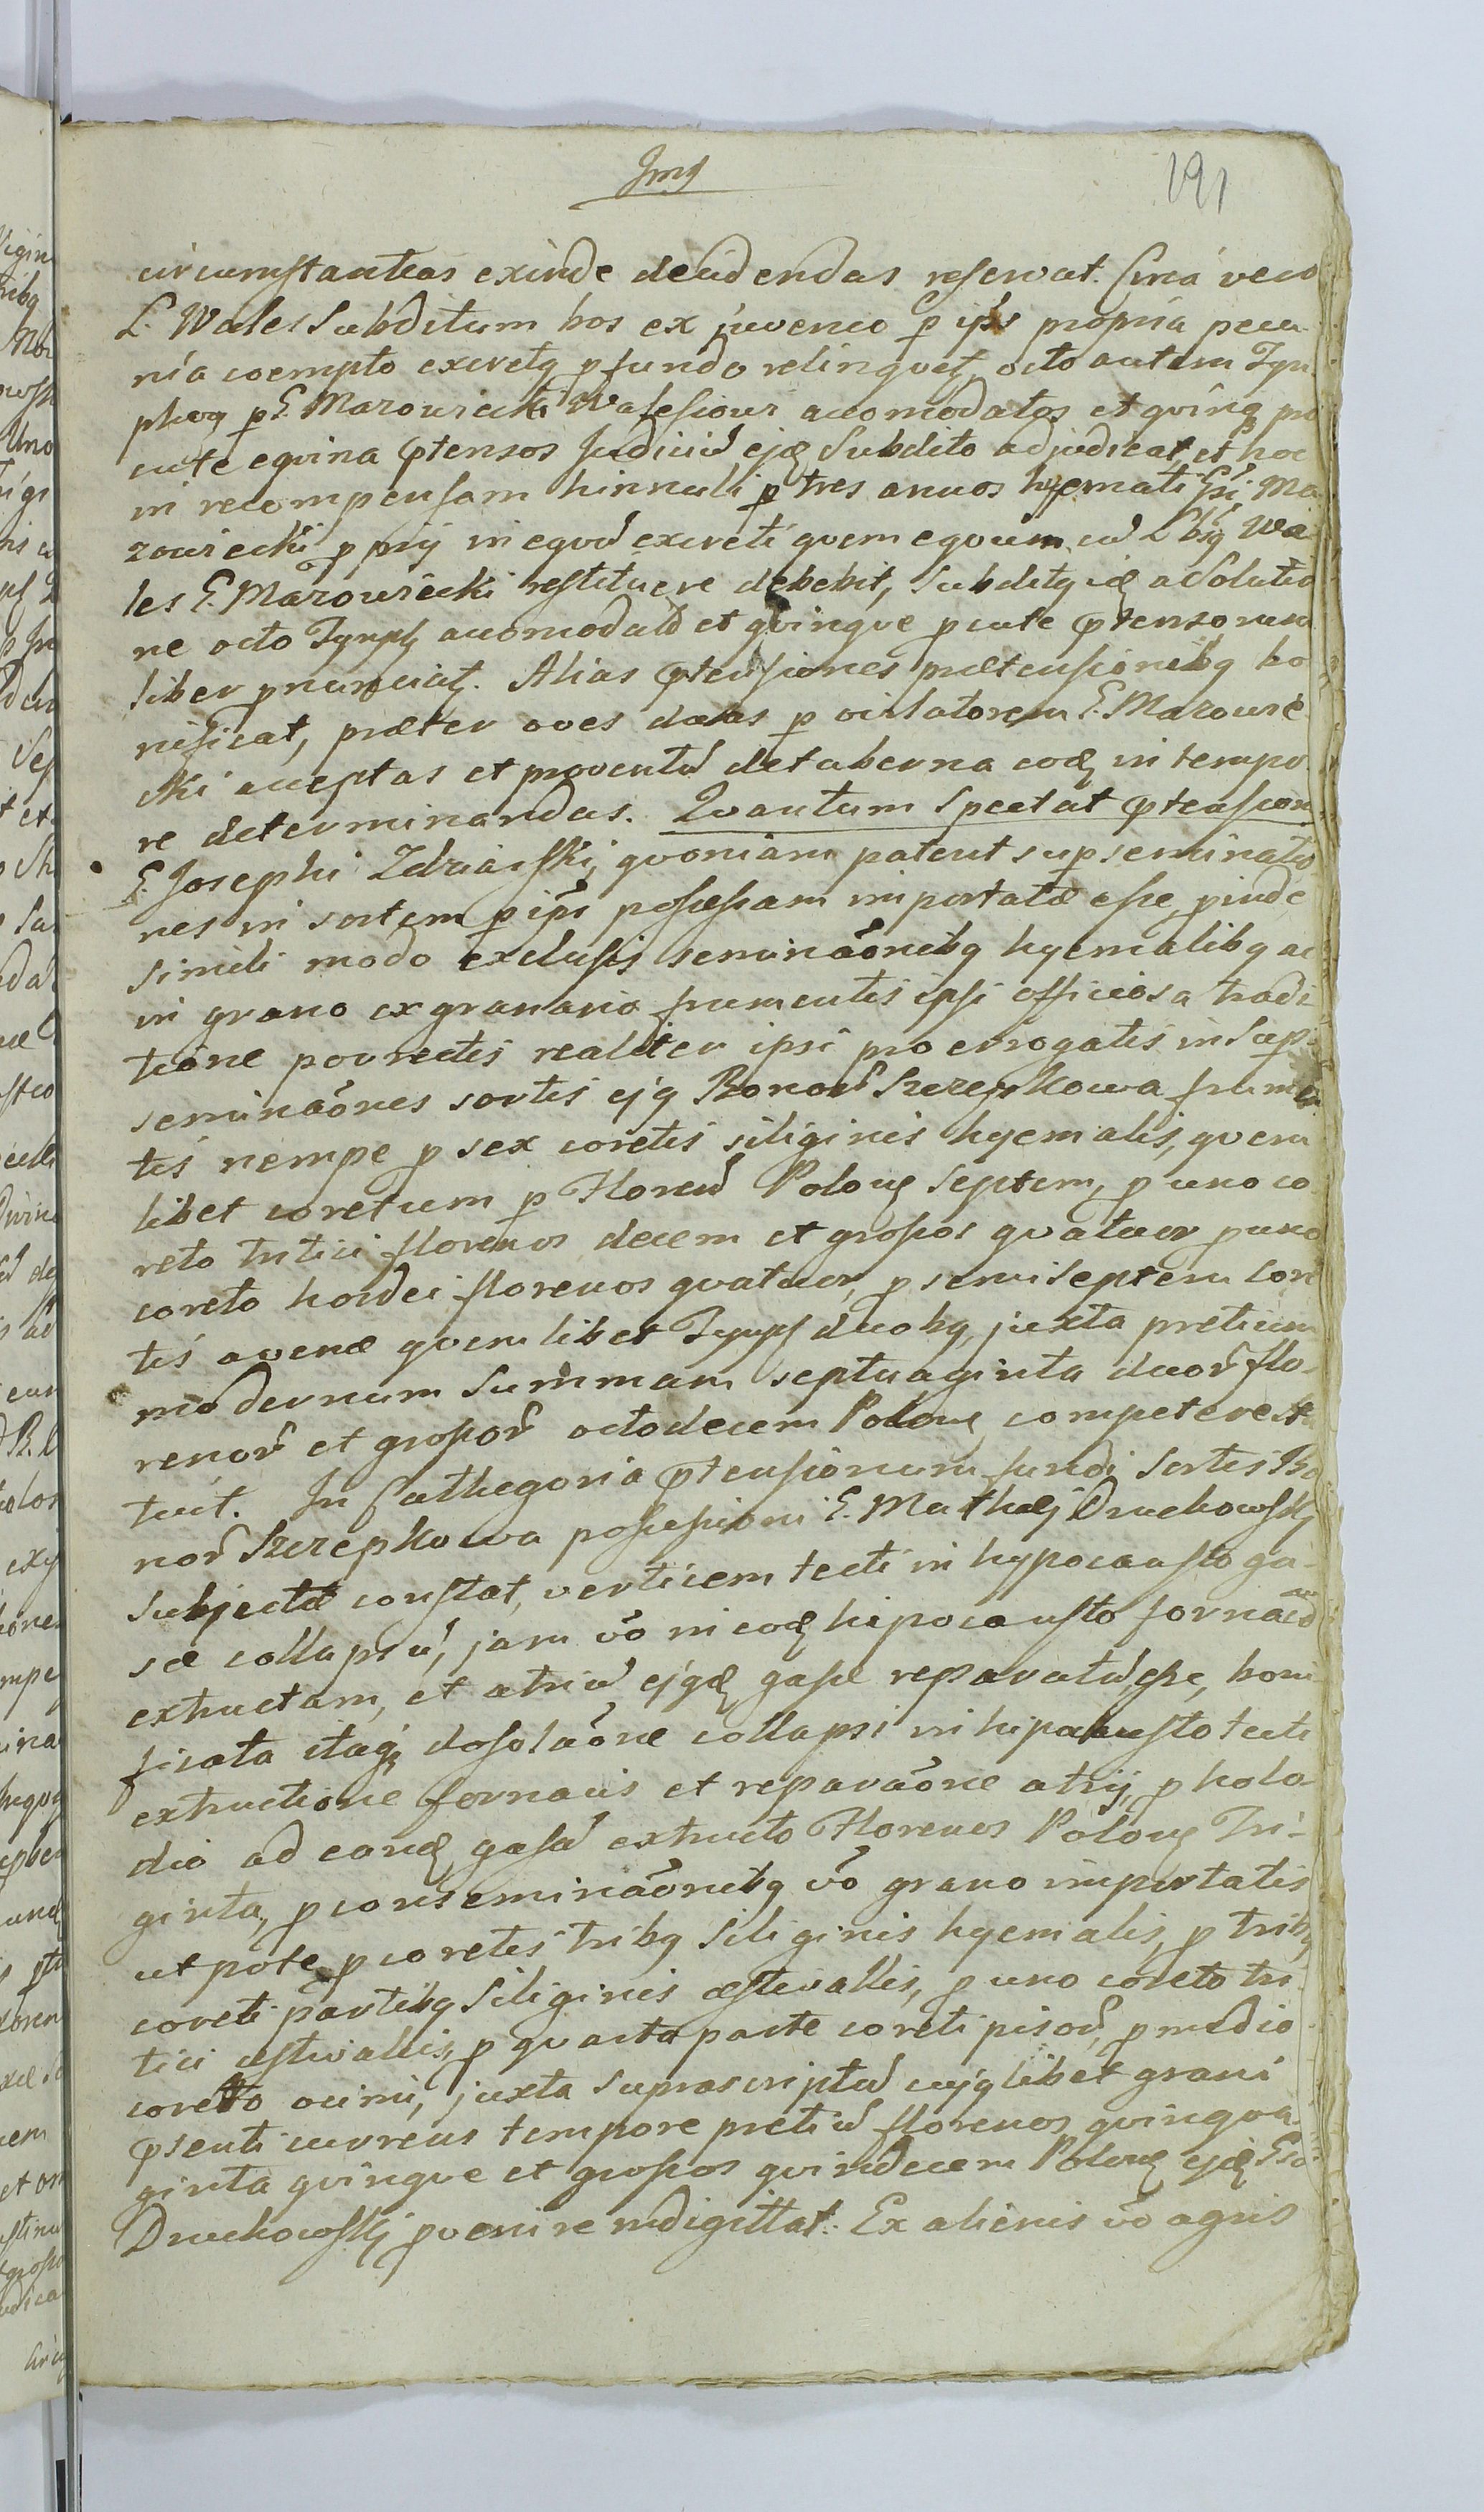 191
circumstantias exinde decidendas reservat. Circa vero
L. Wales Subditum bos ex juvenco p ips propria pecu-
nia coempto excretq p fundo relinquetz, octo autem Tyn-
phoq p G. Mazowiecki Walesiowi accomodatos et quinq pro
cute equina ptensos Judiciu ejdz Subdito adjudicat, et hoc
in recompensam hinnuli p tres annos hyemati Gsi Ma
zowiecki p prij in equu excreti quem equum cu L Wa
les G. Mazowiecki restituere debebit, Subditq idz a Solutio
ne octo Tynph accomodato et quinque p cute ptensorum
liber pnunciatz. Alias ptensiones prætensionibq bo
nificat, præter oves duas p G. Mazowie
cki acceptas et proventu de taberna eodz in tempo
re determinandas. Quantum Spectat ptension
G. Josephi Zdziarski, quoniam patent supseminatio
nes in sortem p ips possessam importatæ esse, pinde
simili modo exclusis seminaonibq hyemalibq ac
in grano ex granario frumentis ipsi officiosa tradi
tione porrectis realiter ipsi pro errogatis in Sup-
seminaones sortis ejq Bonor Szczepkowa frumen
tis nempe p sex coretis siliginis hyemalis, quem
libet coretum p Floren Polonq septem, p uno co
reto tritici florenos decem et grossos quatuor p uno
coreto hordei florenos quatuor, p semiseptem core
tis avenæ quemlibet Tynph duobq, juxta pretium
modernum Summam septuaginta duor flo-
renor et grossor octodecem Polonq competere sta
tuit. In Cathegoria ptensionum fundi Sortis Bo
nor Szczepkowa possessioni G. Mathæj Druchowskj
Subjectæ constat, verticem tecti in hypocausto ga-
sæ collapsu, jam vo in eodz hipocausto fornacem
extructam, et atriu ejqdz gasæ reparatu esse, boni
ficata itaq desolaone collapsi in hipocausto tecti
extructione fornacis et reparaone atrij, p holo
dio ad eandz gasa extructo Florenos Polonq Tri-
ginta, p conseminaonibq vo grano importatis
utpote p coretis tribq Siliginis hyemalis, p tribq
coreti partibq Siliginis æstivallis, p uno coreto tri
tici æstivallis, p quarta parte coreti pisor, p medio
coreto ocimi, juxta Suprascriptu cujqlibet grani
psenti currens tempore pretiu florenos quinqua
ginta quinque et grossos quindecem Polonq ejdz Gso
Druchowskj pvenire indigittat. Ex alienis vo agris